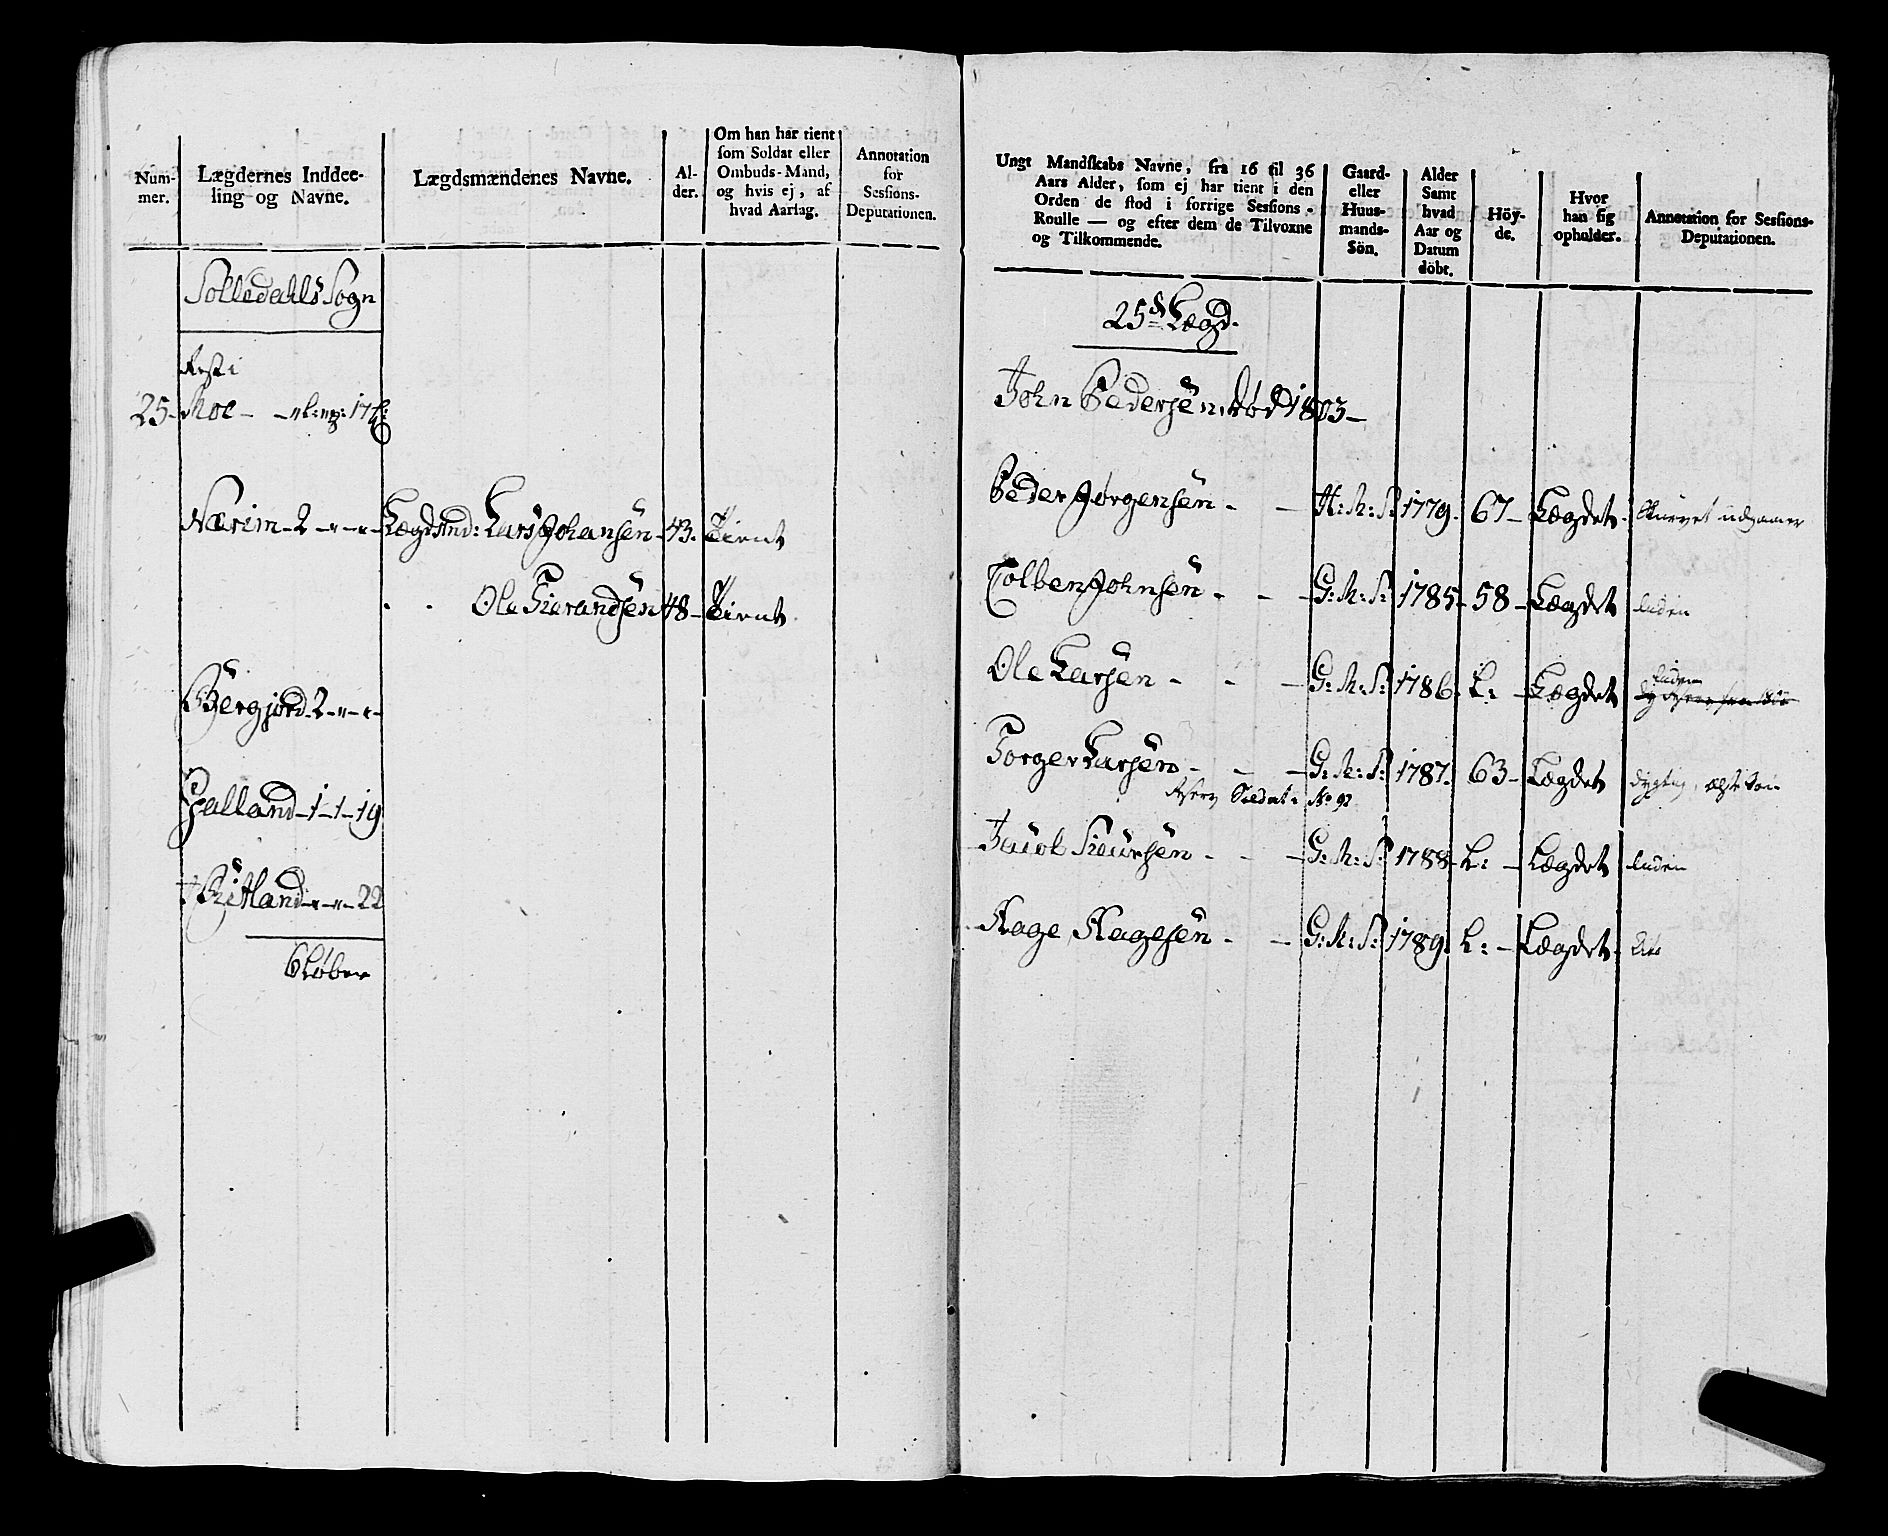 Num-
mer.
Lægdernes Inddee-
ling og Navne.
Lægdsmændenes Navne.
Al-
der.
Om han har tient
som Soldat eller
Ombuds-Mand,
og hvis ej, af
hvad Aarsag.
Annotation
for
Sessions-
Deputationen.
Solledahls Sogn
25 Moe
Nærim 2 Lægdsmd: Lars Johansen 43. Tient
Ole Sivrandsen 48 Tient
Bergjord 2
Halland 1 1 19
Ritland 22
6 Løber
Ungt Mandskabs Navne, fra 16 til 36
Aars Alder, som ej har tient i den
Orden de stod i forrige Sessions-
Roulle — og efter dem de Tilvoxne
og Tilkommende.
Gaard-
eller
Huus-
mands-
Sön.
Alder
Samt
hvad
Aar og
Datum
döbt.
Höy-
de.
Hvor
han sig
opholder.
Annotation for Sessions-
Deputationen.
25de Lægd.
John Pedersen død 1803
Peder Jørgensen H: M: S: 1779. 67 Lægdet Skurvet udgaaer
Tolben Johnsen G: M: S: 1785 58 Lægdet liden
Ole Larsen G: M: S: 1786. L: Lægdet liden
Torger Larsen G: M: S: 1787. 63 Lægdet dygtig, ælste Søn
Reserv Soldat No 92
Jacob Siursen G: M: S: 1788 L: Lægdet liden
Aage Aagesen G: M: S: 1789. L: Lægdet